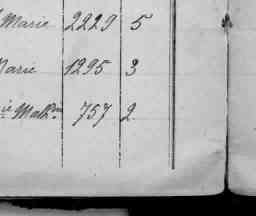 Marie 2229 5
Marie 1295 3
ie Math.ne 757 2